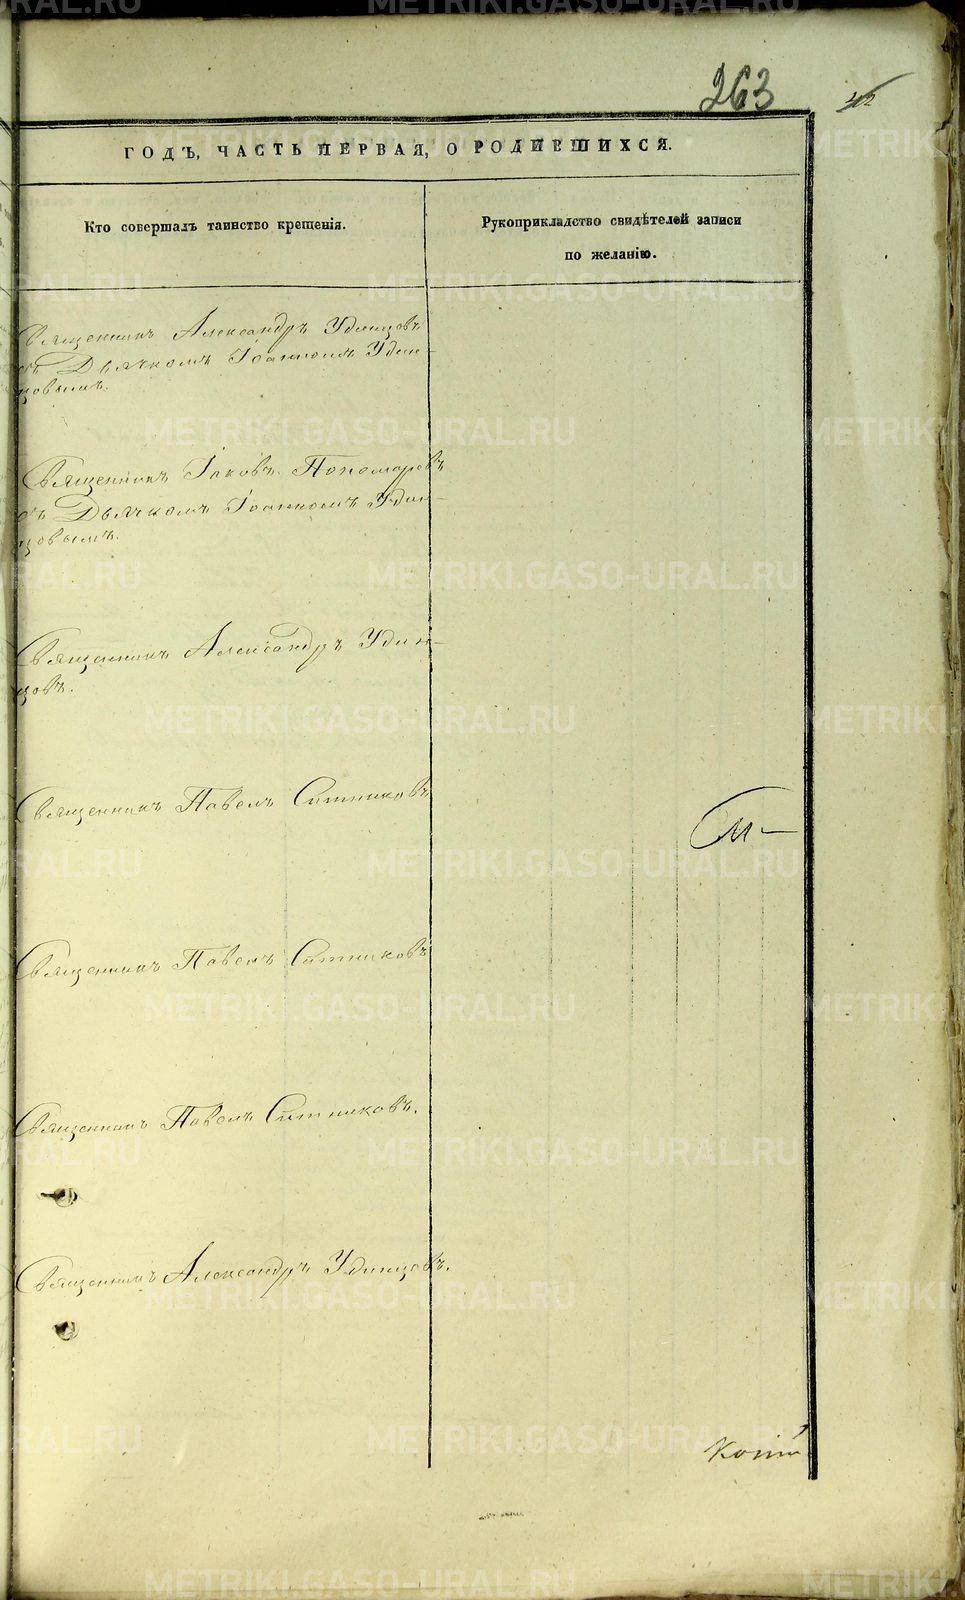 263
ГОДЪ, ЧАСТЬ ПЕРВАЯ, О РОДИВШИХСЯ.
Кто совершалъ таинство крещенія.
Рукоприкладство свидѣтелей записи
по желанію.
Священникъ Александръ Удинцовъ
съ Дьячкомъ Іоанномъ Удин-
цовымъ.
Священникъ Іаковъ Пономаревъ
съ Дьячкомъ Іоанномъ Удин-
цовымъ.
Священникъ Александръ Удин-
цовъ.
Священникъ Павелъ Ситниковъ
Священникъ Павелъ Ситниковъ
Священникъ Павелъ Ситниковъ.
Священникъ Александръ Удинцовъ.
METRIKI.GASO-URAL.RU